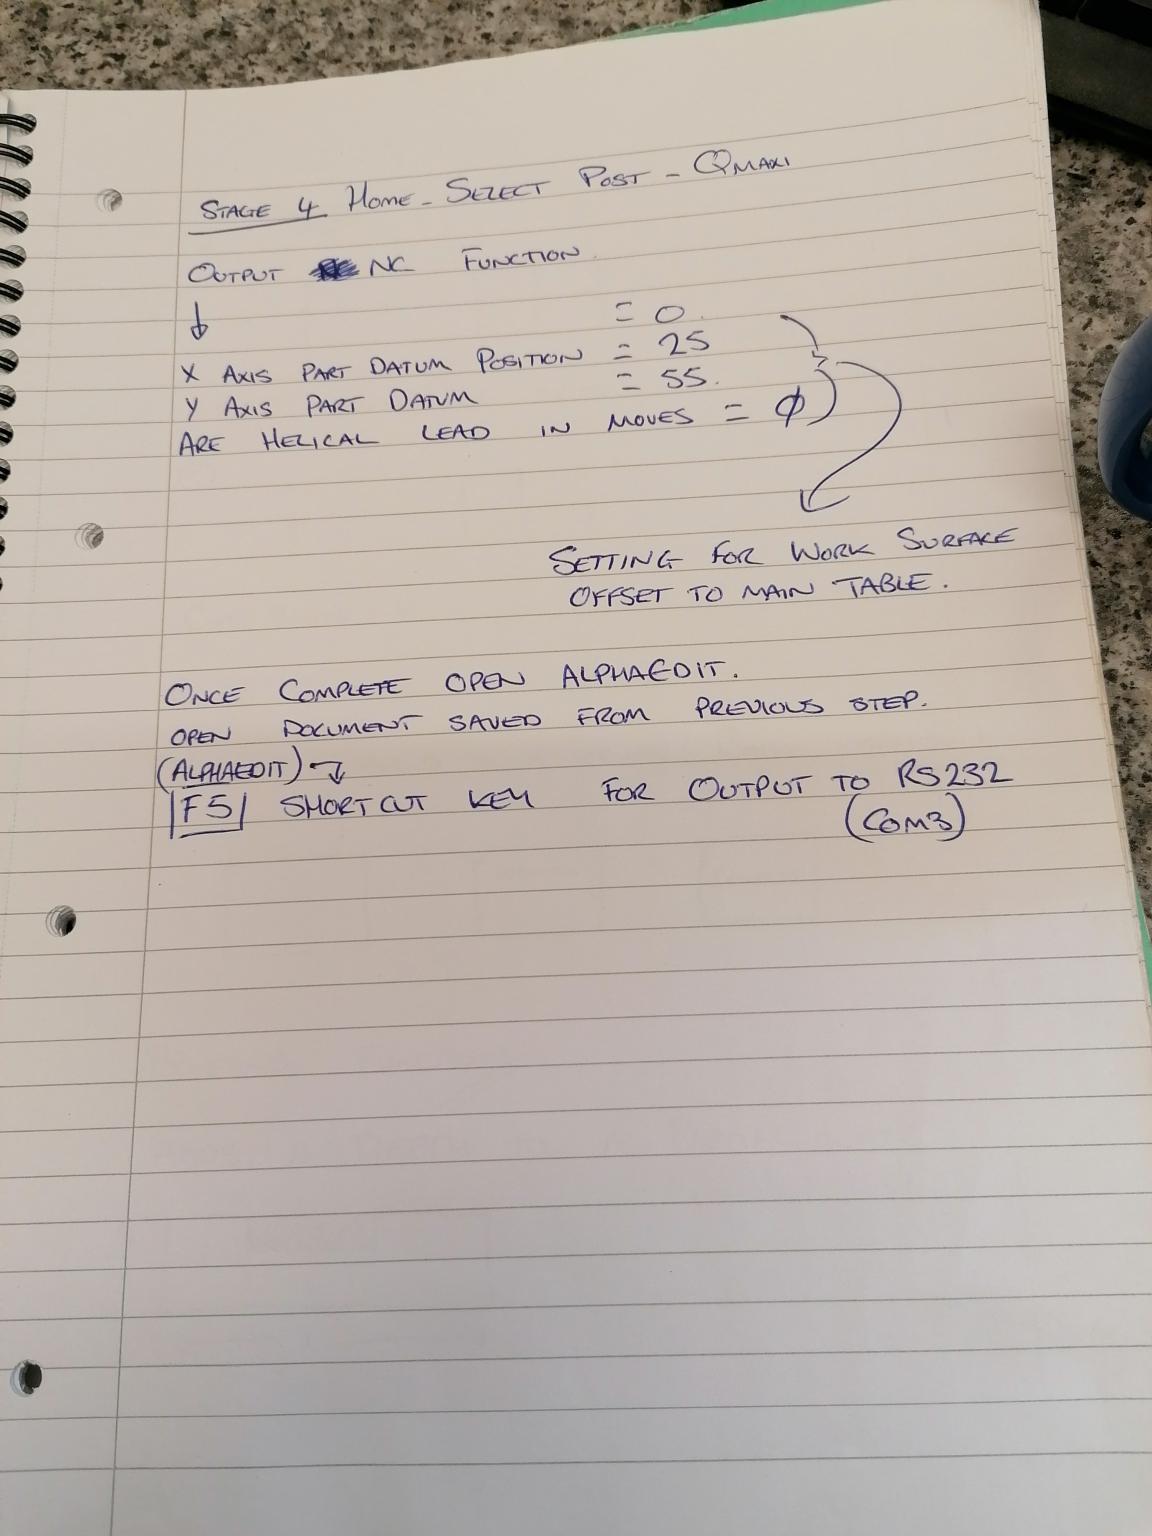 STAGE 4 HOME - SELECT POST - QMAXI
OUTPUT NC FUNCTION
↓ = 0.
X AXIS PART DATUM POSITION = 25
Y AXIS PART DATUM = 55.
ARE HELICAL LEAD IN MOVES = φ
SETTING FOR WORK SURFACE
OFFSET TO MAIN TABLE.
ONCE COMPLETE OPEN ALPHAEDIT.
OPEN DOCUMENT SAVED FROM PREVIOUS STEP.
(ALPHAEDIT)
F5 SHORTCUT KEY FOR OUTPUT TO RS232
(COM3)